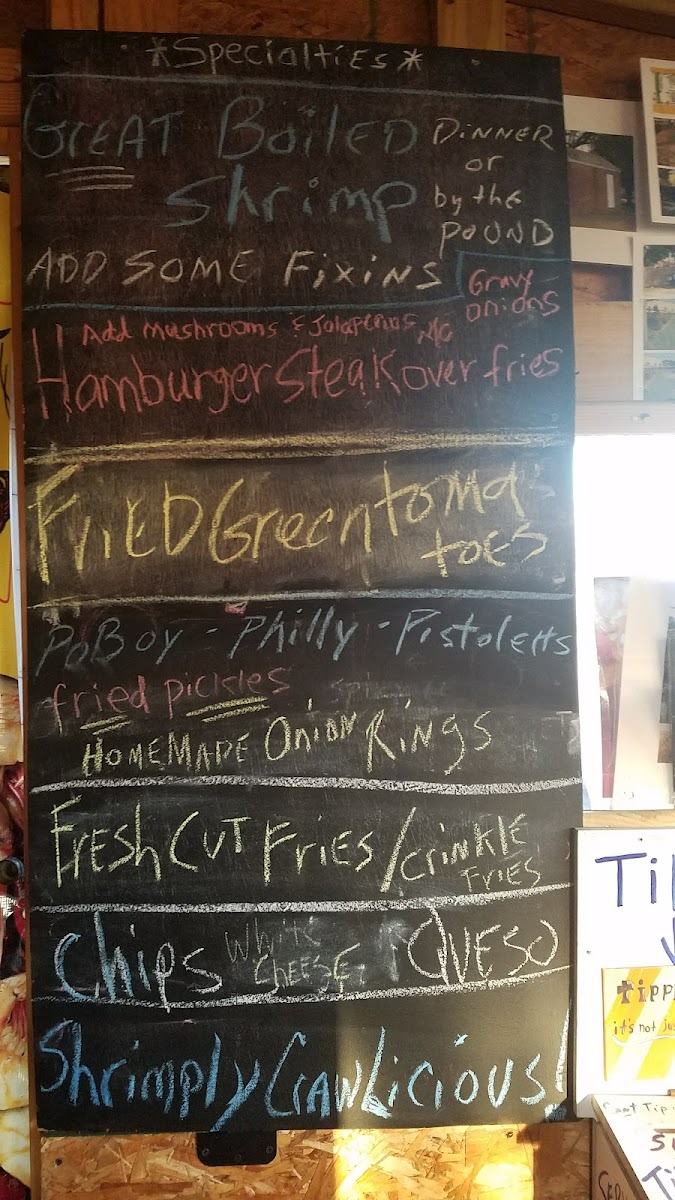 *Specialties*
GREAT Boiled
Shrimp
DINNER
or
by the
POUND
ADD SOME FixiNS
Gravy
onions
Add mushrooms & Jalapenos
Hamburger Steak over fries
FriED Green toma
toes
PoBoy - Philly - Pistoletts
fried pickles
HOMEMADE ONiON RiNgs
FResh CUT FRiES / CRiNKLE
FRiES
Chips White Cheese QUESO
Shrimply CrawLicious!
Ti
tipp
it's not jus